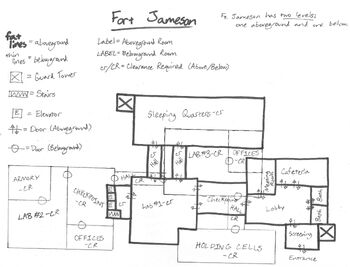 Fort Jameson
Ft. Jameson has two levels:
one aboveground and one below.
fat lines = aboveground
thin lines = belowground
= Guard Tower
= Stairs
= Elevator
= Door (Aboveground)
= Door (Belowground)
Label = Aboveground Room
LABEL = Belowground Room
cr/CR = Clearance Required (Above/Below)
Sleeping Quarters-cr
HALL
CR
cr
cr
LAB #3-CR
OFFICES
-CR
Cafeteria
ARMORY
-CR
CHECKPOINT
-CR
LAB #2-CR
OFFICES
-CR
Lab #1-cr
Checkpoint
HALL
CR
Lobby
HOLDING CELLS
-CR
Dressing
Entrance